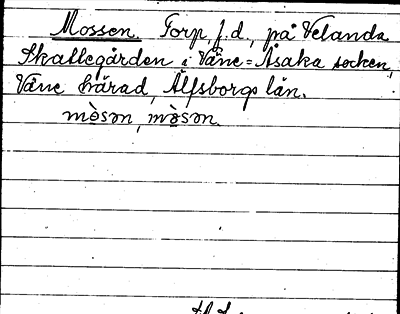 Mossen. Torp, f.d., på Velanda
Skattegården i Väne-Åsaka socken,
Väne härad, Älfsborgs län.
mòsən, mòsən.